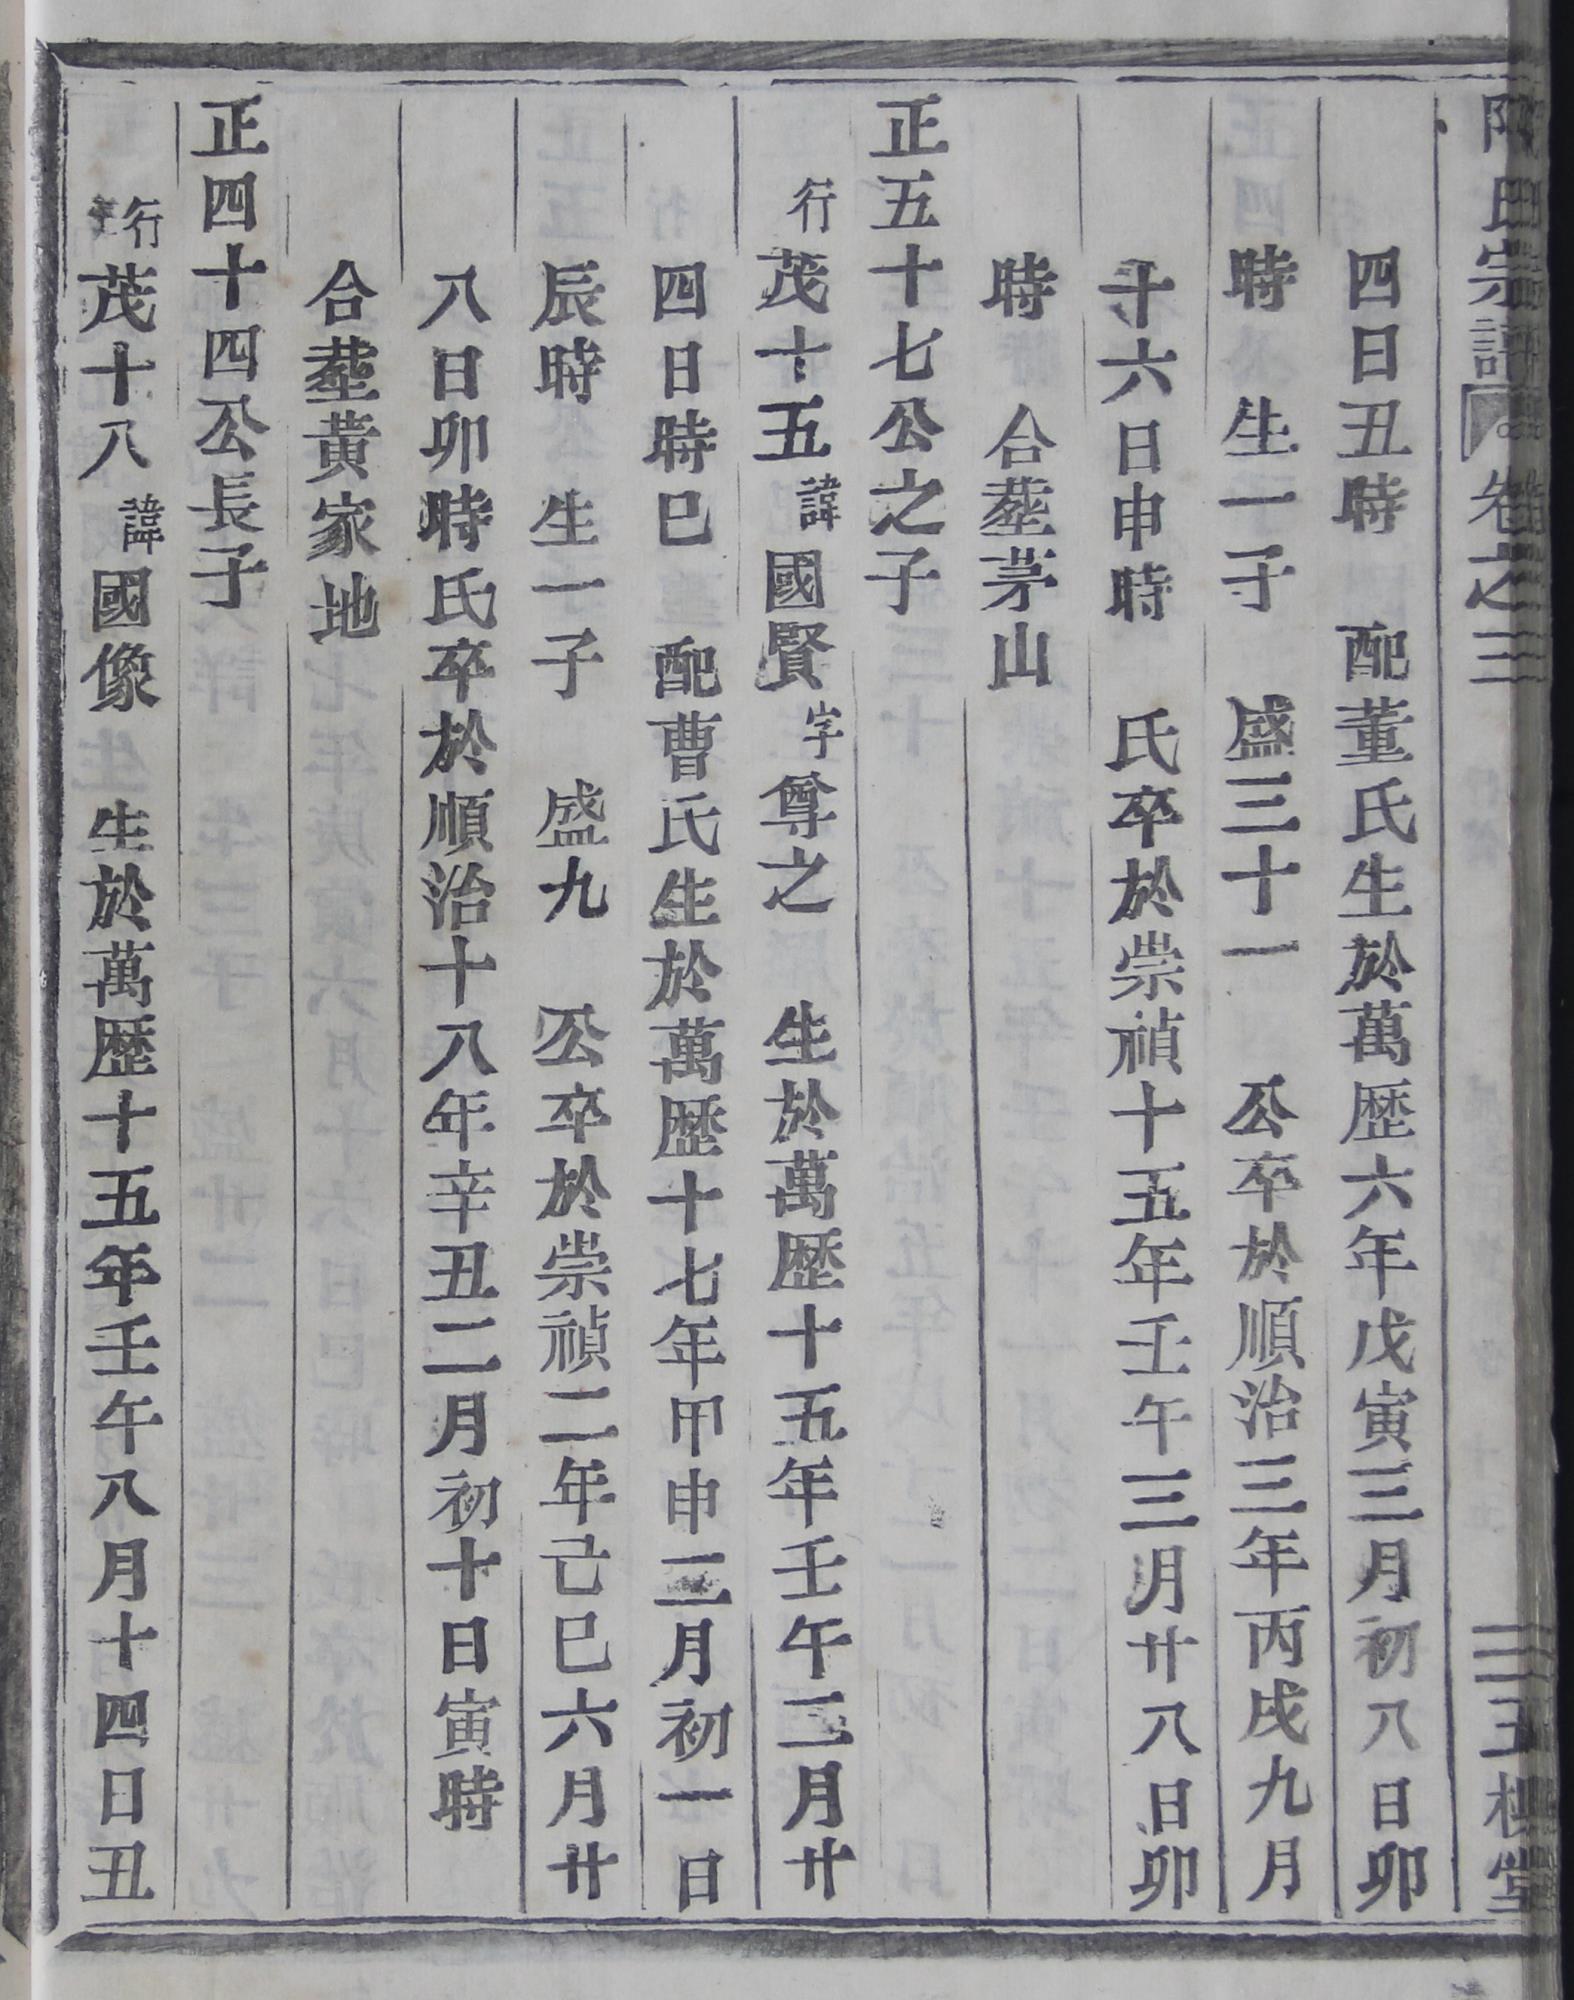 氏宗譜 卷之三 三 五桂堂
四日丑時 配董氏生於萬歷六年戊寅三月初八日卯
時 生一子 盛三十一 公卒於順治三年丙戌九月
十六日申時 氏卒於崇禎十五年壬午三月廿八日卯
時 合塟茅山
正五十七公之子
行茂十五諱國賢字尊之 生於萬歷十五年壬午三月廿
四日時巳 配曹氏生於萬歷十七年甲申三月初一日
辰時 生一子 盛九 公卒於崇禎二年己巳六月廿
八日卯時氏卒於順治十八年辛丑二月初十日寅時
合塟黃家地
正四十四公長子
行茂十八諱國像 生於萬歷十五年壬午八月十四日丑